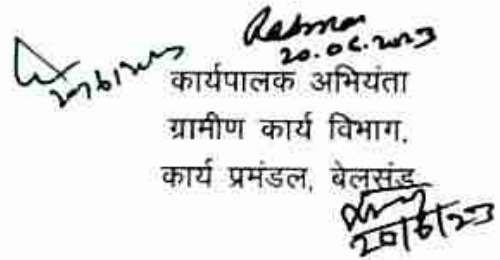 20.06.2023
कार्यपालक अभियंता
ग्रामीण कार्य विभाग,
कार्य प्रमंडल, बेलसंड
20/6/23